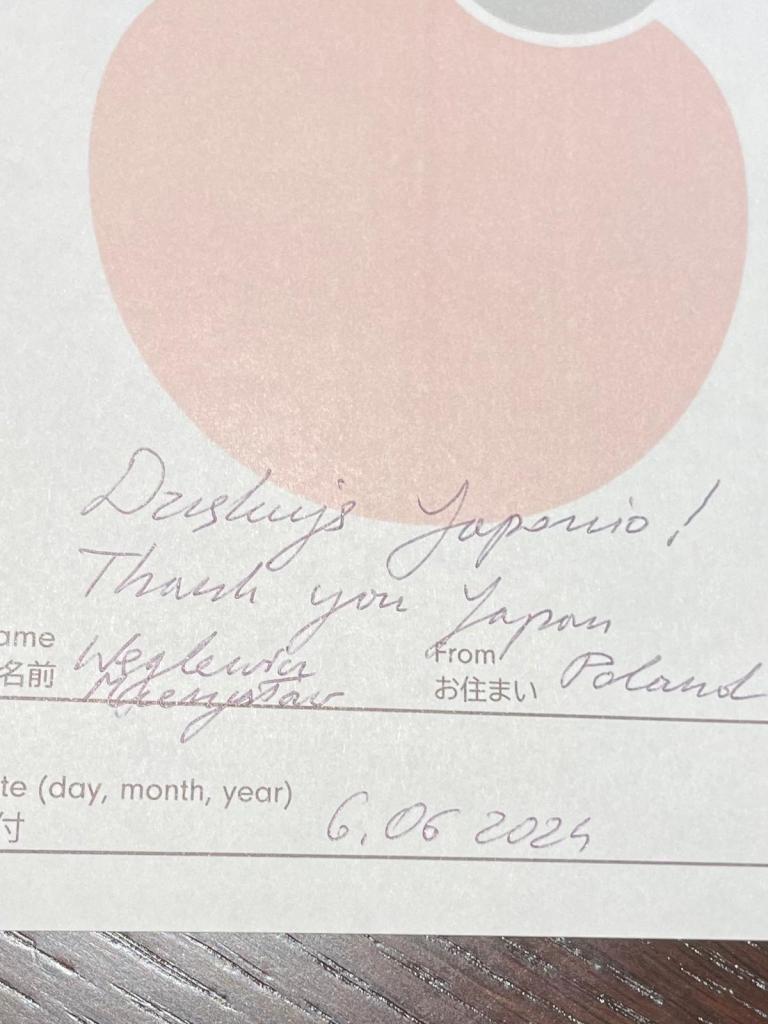 Dziękuję Japonio!
Thank you Japan
ame
名前
Węglewicz
Mieczysław
From
お住まい
Poland
te (day, month, year)
付
6.06 2024